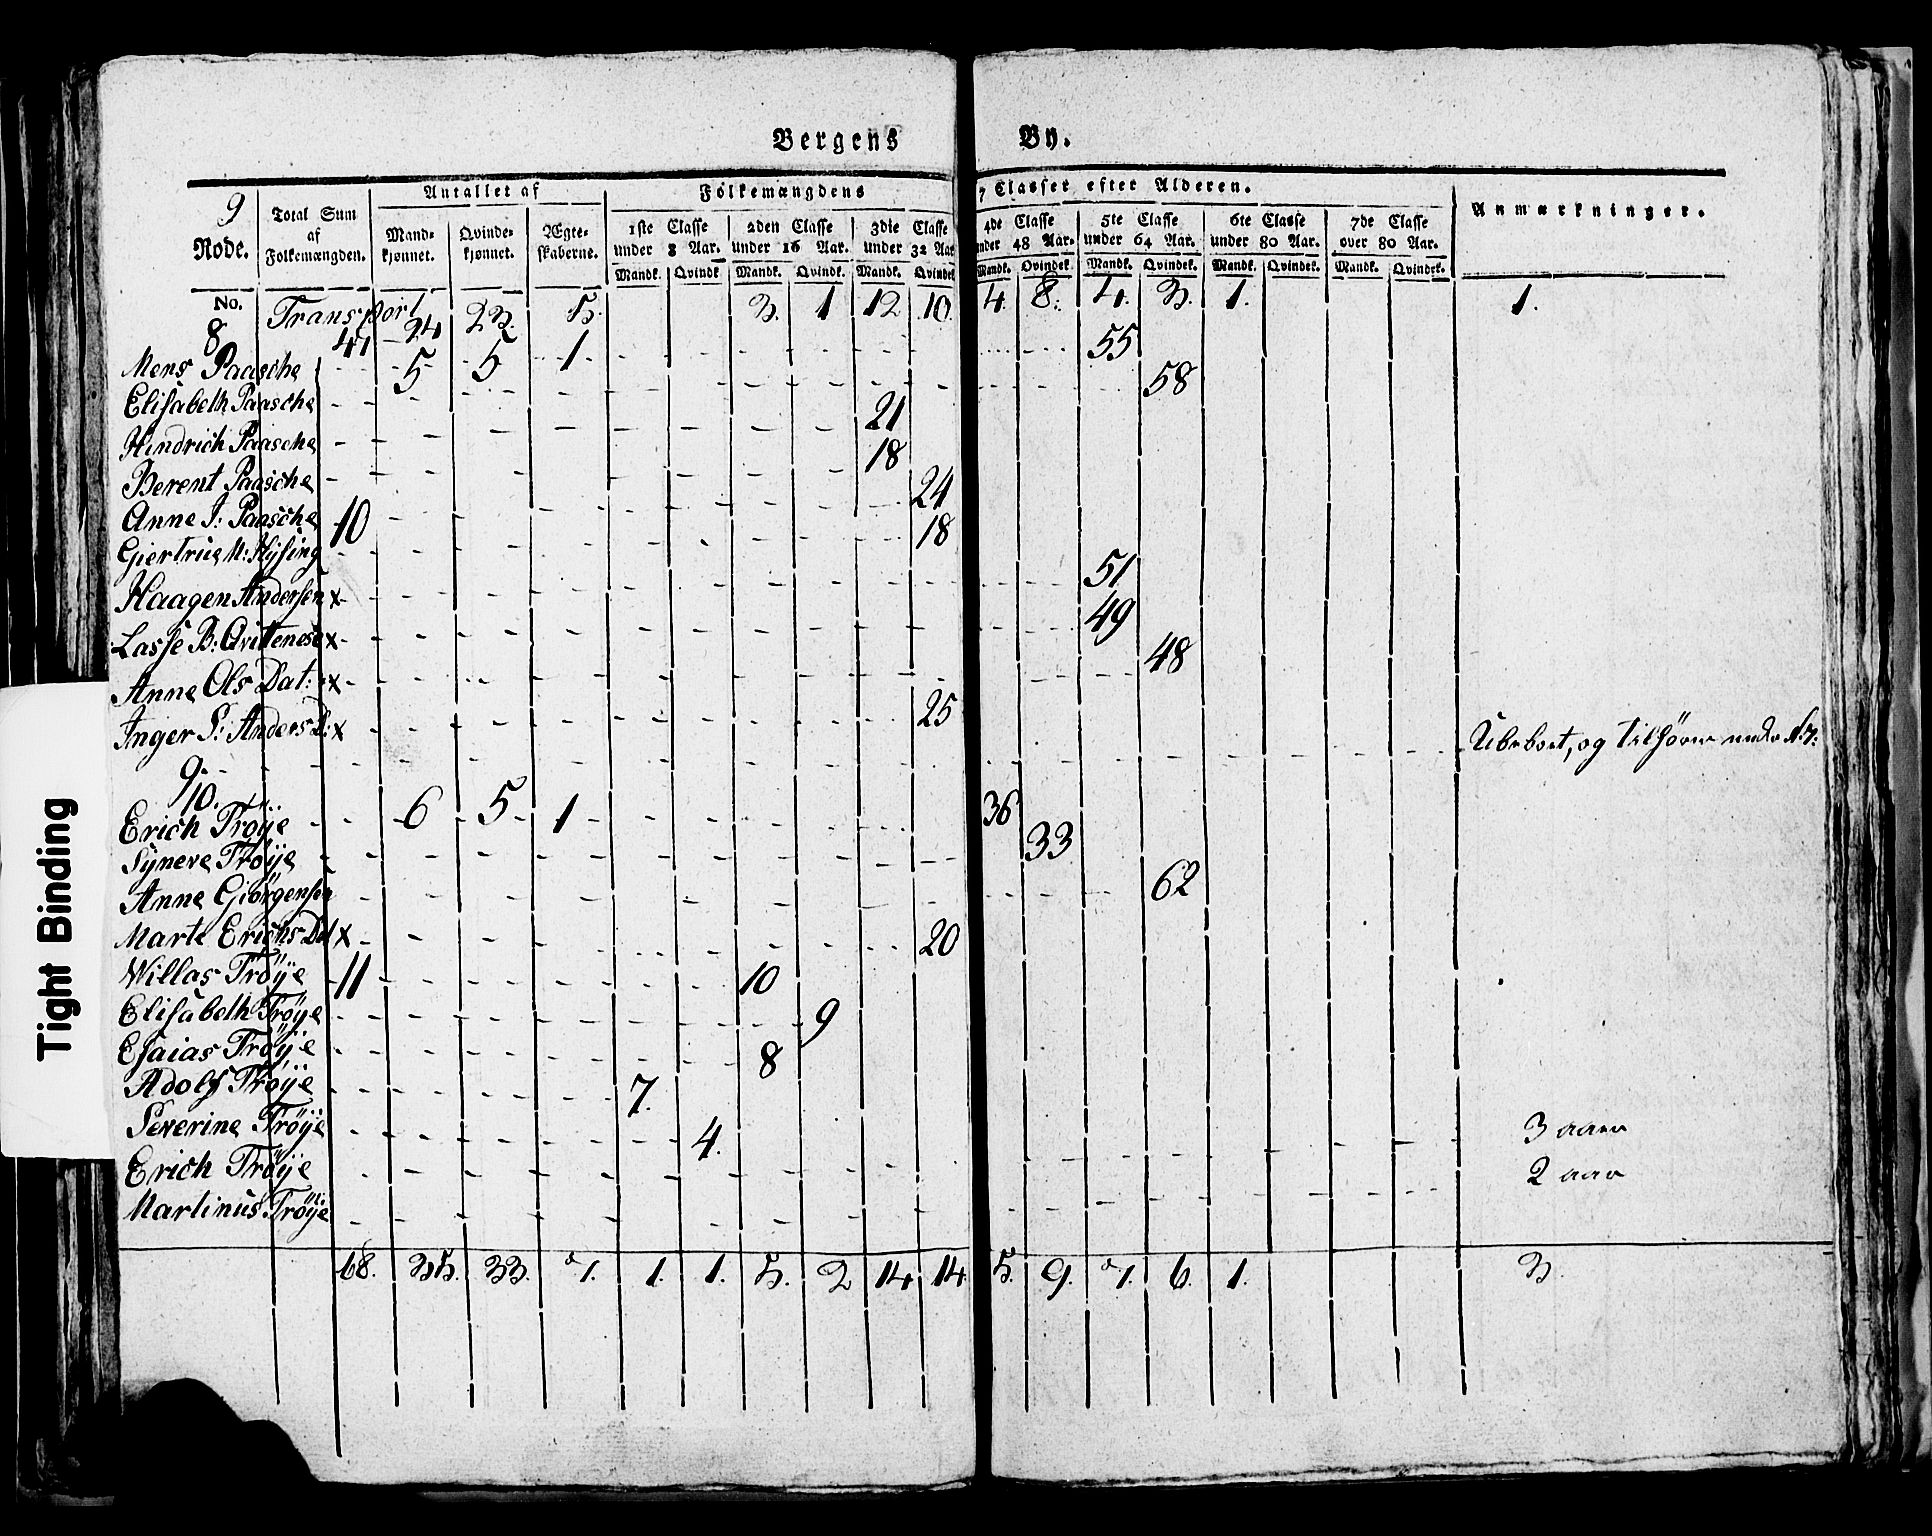 Bergens By.
9 Rode. Total Sum af Folkemængden. Antallet af Mandkjønnet. Qvindekjønnet. Ægteskaberne. Folkemængdens 7 Classer efter Alderen. Anmærkninger.
1ste Classe under 8 Aar. 2den Classe under 16 Aar. 3die Classe under 32 Aar 4de Classe under 48 Aar. 5te Classe under 64 Aar. 6te Classe under 80 Aar. 7de Classe over 80 Aar.
Mandk. Qvindk Mandk. Qvindk. Mandk. Qvindek Mandk. Qvindek Mandk. Qvindek. Mandk. Qvindek. Mandk. Qvindek.
No. Transport 47 24 23. 5. 3. 1 12 10. 4. 8. 4. 3. 1. 1.
8
Mens Paasche 5 5 1 55
Elisabeth Paasche 58
Hindrich Paasche 21
Berent Paasche 18
Anne J: Paasche 10 24
Giertrue M: Hysing 18
Haagen Andersen x 51
Lasse B: Qvitenese x 49
Anne Ols Dat: x 48
Inger S: Anders D: x 25
9. Ubeboet, og tilhører under N: 7:
10.
Erich Trøÿe 6 5 1 36
Syneve Trøÿe 33
Anne Giørgensen 62
Marte Erichs Dat x 20
Willas Trøÿe 11 10
Elisabeth Trøÿe 9
Esaias Trøÿe 8
Adolf Trøÿe 7.
Severine Trøÿe 4.
Erich Trøÿe 3 aar
Martinus Trøÿe 2 aar
68. 35. 33. 7. 1. 1. 5. 2 14 14 5. 9. 7. 6. 1. 3.
Tight Binding